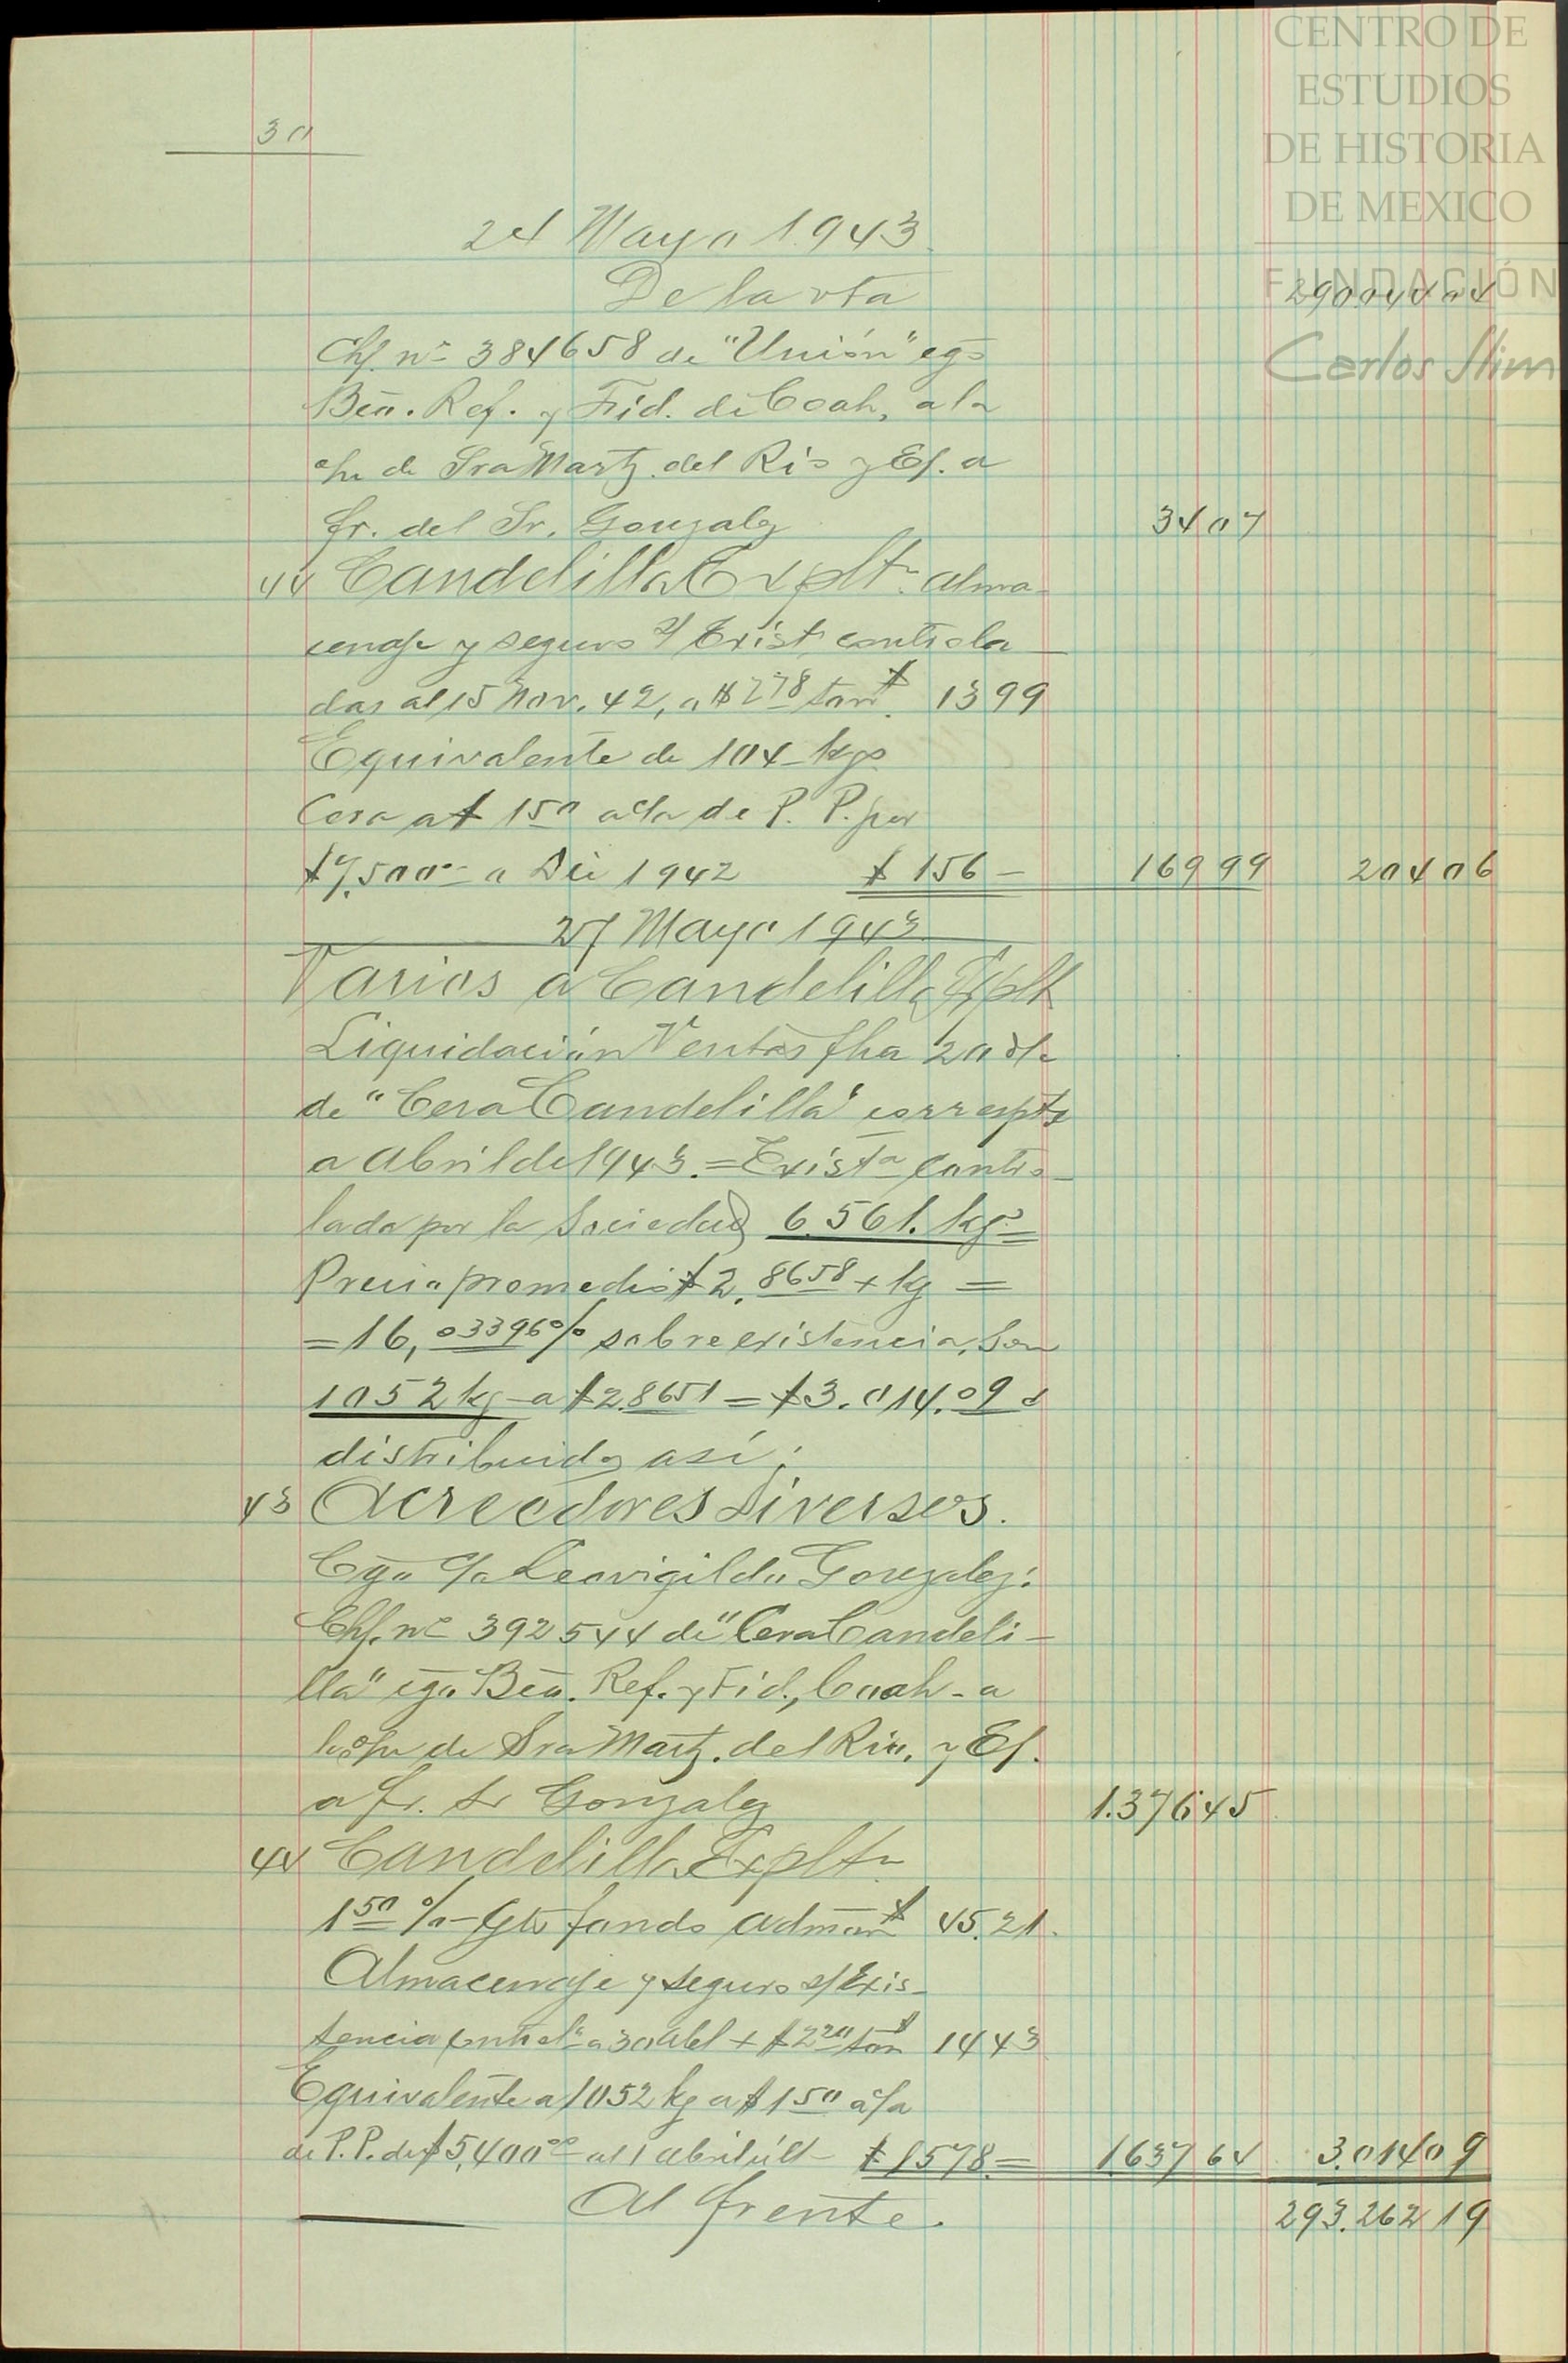 CENTRO DE
ESTUDIOS
DE HISTORIA
DE MEXICO
FUNDACIÓN
Carlos Slim
30
24 Mayo 1943.
De la vta 290.044 04
Chf. nº 384658 de "Unión" ego
Bco. Ref. y Fid. de Coah, a la
de Sra Martz. del Rio y Ef. a
fr. del Sr. Gonzalez 34 07
44 Candelilla Explt. alma-
cenaje y seguro s/ Exist controla-
das al 15 Nov. 42, a $ 2 78 ton $ 13 99
Equivalente de 104- kgs
Cera a $ 1 50 a/c de P. P. por
$ 7,500 00 a Dic 1942 $ 156 - 169 99 204 06
27 Mayo 1943
Varios a Candelilla Explt
Liquidación Ventas fha 20
de "Cera Candelilla" correspte
a Abril de 1943. = Exista contro-
lada por la Sociedad 6.561. kg =
Precio promedio $ 2. 8658 + kg =
= 16, 03396% sobre existencia, son
1052 kg - a $ 2.8651 = $ 3.014.09
distribuidos así:
43 Acreedores Diversos.
Cgo Leovigildo Gonzalez:
Chf. nº 392544 de "Cera Candeli-
lla" ego Bco. Ref. y Fid., Coah - a
de Sra Martz. del Rio. y Ef.
a fr. Sr Gonzalez 1.376 45
44 Candelilla Explt
1 50 %- Gts fondo admon $ 45.21.
Almacenaje y seguro s/ Exis-
tencia a 30 Abl + $ 2 20 ton $ 14 43
Equivalente a 1052 kg a $ 1 50 a/c
de P.P. de $ 5,400 00 al 1 abril últ - $ 1578.= 1.637 64 3.014 09
Al frente. 293.262 19